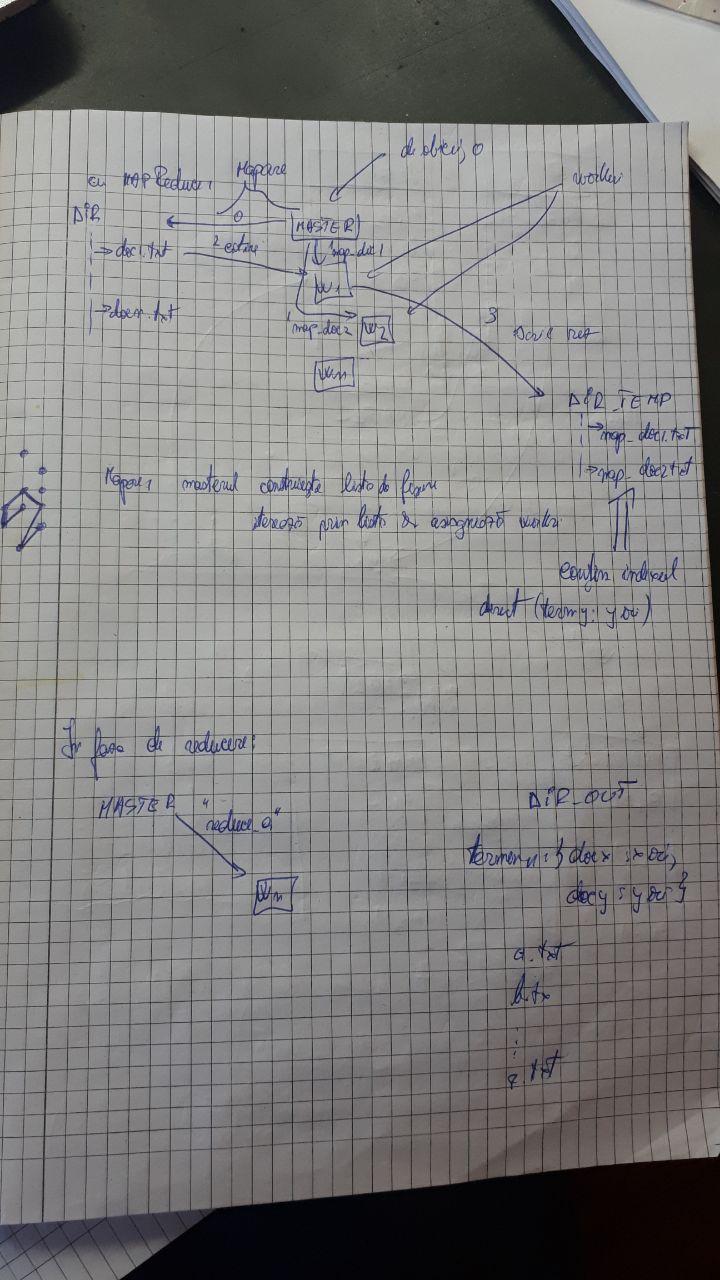 de obicei, 0
Mapare
cu MAP Reduce:
workeri
DIR
0
MASTER
→ doc1.txt
2 citire
map_doc1
W1
→ docn.txt
1
map_doc2
W2
3
Wn
DIR_TEMP
→ map_doc1.txt
→ map_doc2.txt
Mapare: masterul construiește lista de fișiere
iterează prin listă & asignează workeri
conțin indexul
direct (termy: y oc)
În faza de reducere:
MASTER
"reduce_a"
DIR_OUT
Wn
termenn: { docx : x oc,
docy : y oc }
a.txt
b.tx
z.txt